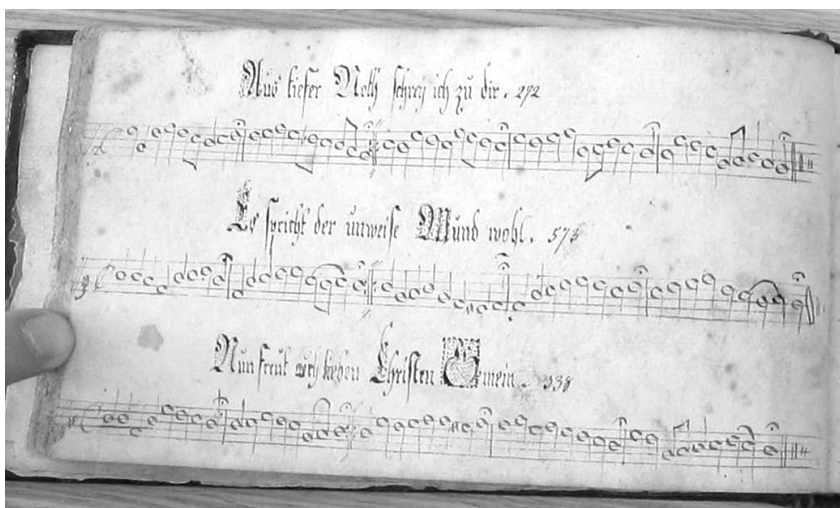 Aus tiefer Noth schrey ich zu dir. 272
Es spricht der unweise Mund wohl. 573
Nun freut euch lieben Christen Gmein. 338